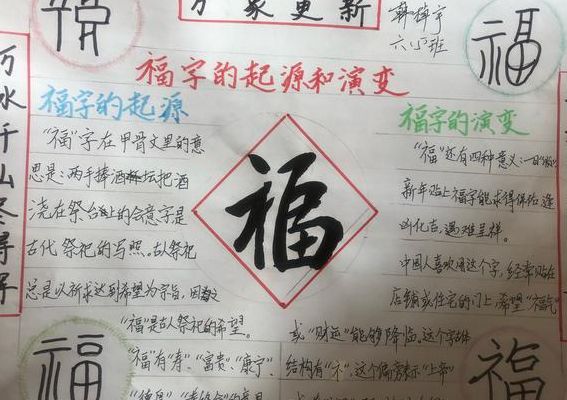 万象更新
韩梓宇
六(2)班
福
福
福字的起源和演变
福字的起源
"福"字在甲骨文里的意
思是:两手捧酒坛把酒
浇在祭台上的会意字是
古代祭祀的写照。古人祭祀
总是以祈求达到希望为字旨,因
"福"是古人祭祀的希望。
"福"有"寿"、"富贵"、"康宁"、
福
福字的演变
"福"还有四种意义:一曰
新年贴上福字能求得保佑 逢
凶化吉。遇难呈祥。
中国人喜欢用这个字,经常贴在
店铺或住宅的门上,希望"福气"
或"财运"能够降临。这个字体
结构有"礻",这个偏旁表示"上帝"
福
福
万水千山尽得